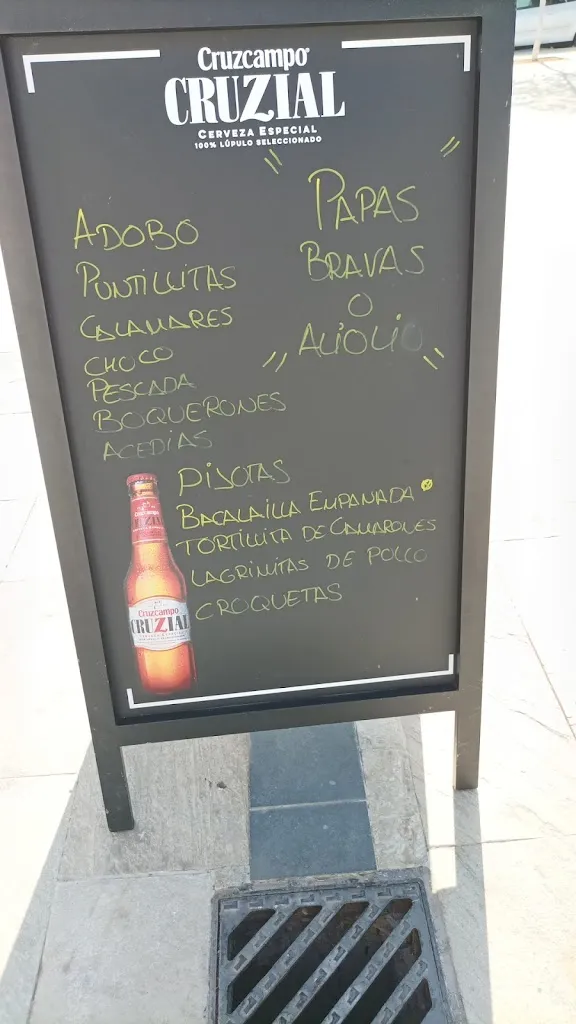 Cruzcampo
CRUZIAL
CERVEZA ESPECIAL
100% LÚPULO SELECCIONADO
ADOBO
PUNTILLITAS
CALAMARES
CHOCO
PESCADA
BOQUERONES
ACEDIAS
PAPAS
BRAVAS
O
ALIOLIO
PIJOTAS
BACALAILLA EMPANADA
TORTILLITA DE CAMARONES
LAGRIMITAS DE POLLO
CROQUETAS
Cruzcampo
CRUZIAL